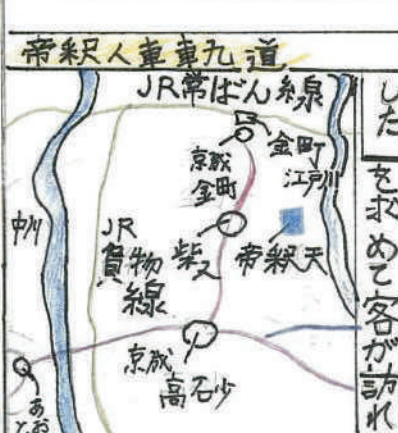 帝釈人車軌道
JR常ばん線
金町
京成
金町
江戸川
中川
JR
貨物
線
柴又
帝釈天
京成
高砂
あお
と
した
を求めて客が訪れ